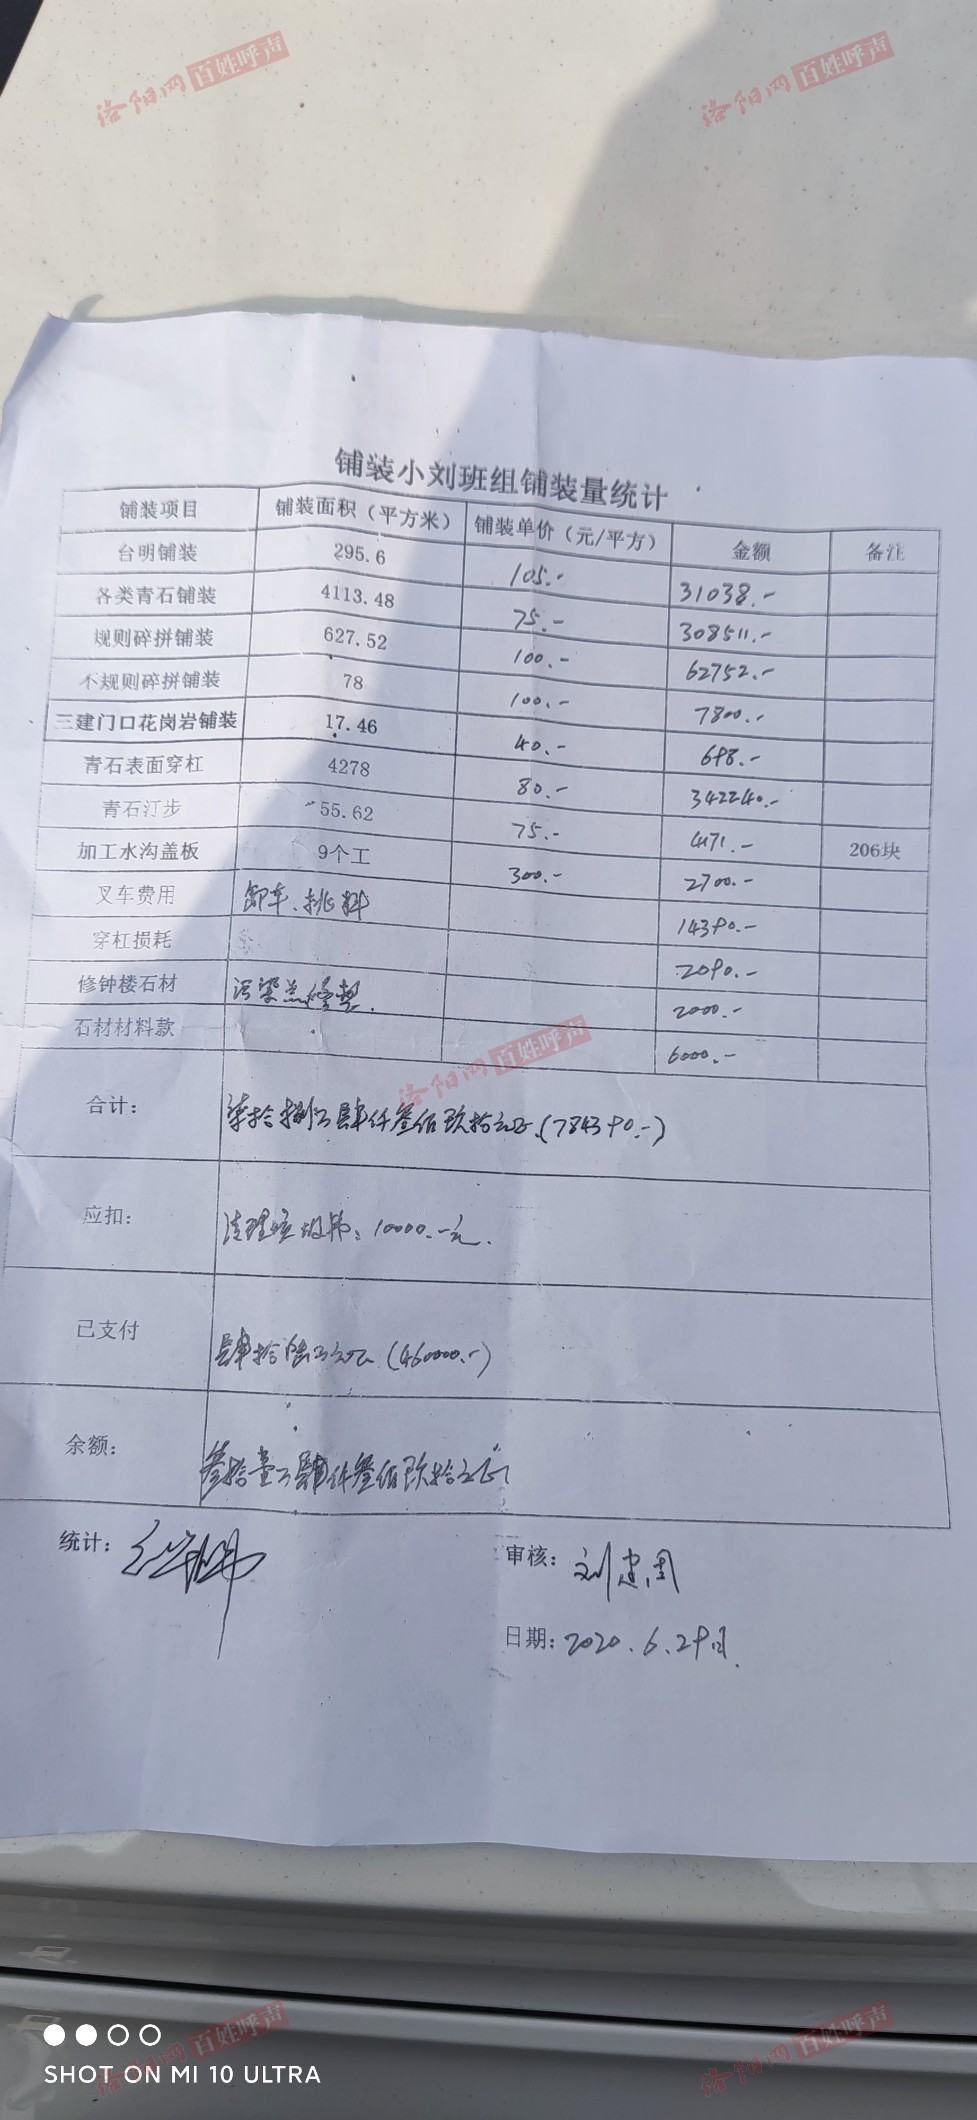 洛阳网 百姓呼声 洛阳网 百姓呼声
铺装小刘班组铺装量统计
铺装项目 铺装面积（平方米） 铺装单价（元/平方） 金额 备注
台明铺装 295.6 105.- 31038.-
各类青石铺装 4113.48 75.- 308511.-
规则碎拼铺装 627.52 100.- 62752.-
不规则碎拼铺装 78 100.- 7800.-
三建门口花岗岩铺装 17.46 40.- 698.-
青石表面穿杠 4278 80.- 342240.-
青石汀步 55.62 75.- 4171.- 206块
加工水沟盖板 9个工 300.- 2700.-
叉车费用 卸车、挑料 14390.-
穿杠损耗 2090.-
修钟楼石材 2000.-
石材材料款 6000.-
洛阳网 百姓呼声
合计： 柒拾捌万肆仟叁佰玖拾元正.(784390.-)
应扣： 清理垃圾费：10000.-元.
已支付 肆拾陆万元正 (460000.-)
余额： 叁拾壹万肆仟叁佰玖拾元正
统计：
审核：刘建周
日期：2020.6.29日.
洛阳网 百姓呼声 洛阳网 百姓呼声
SHOT ON MI 10 ULTRA